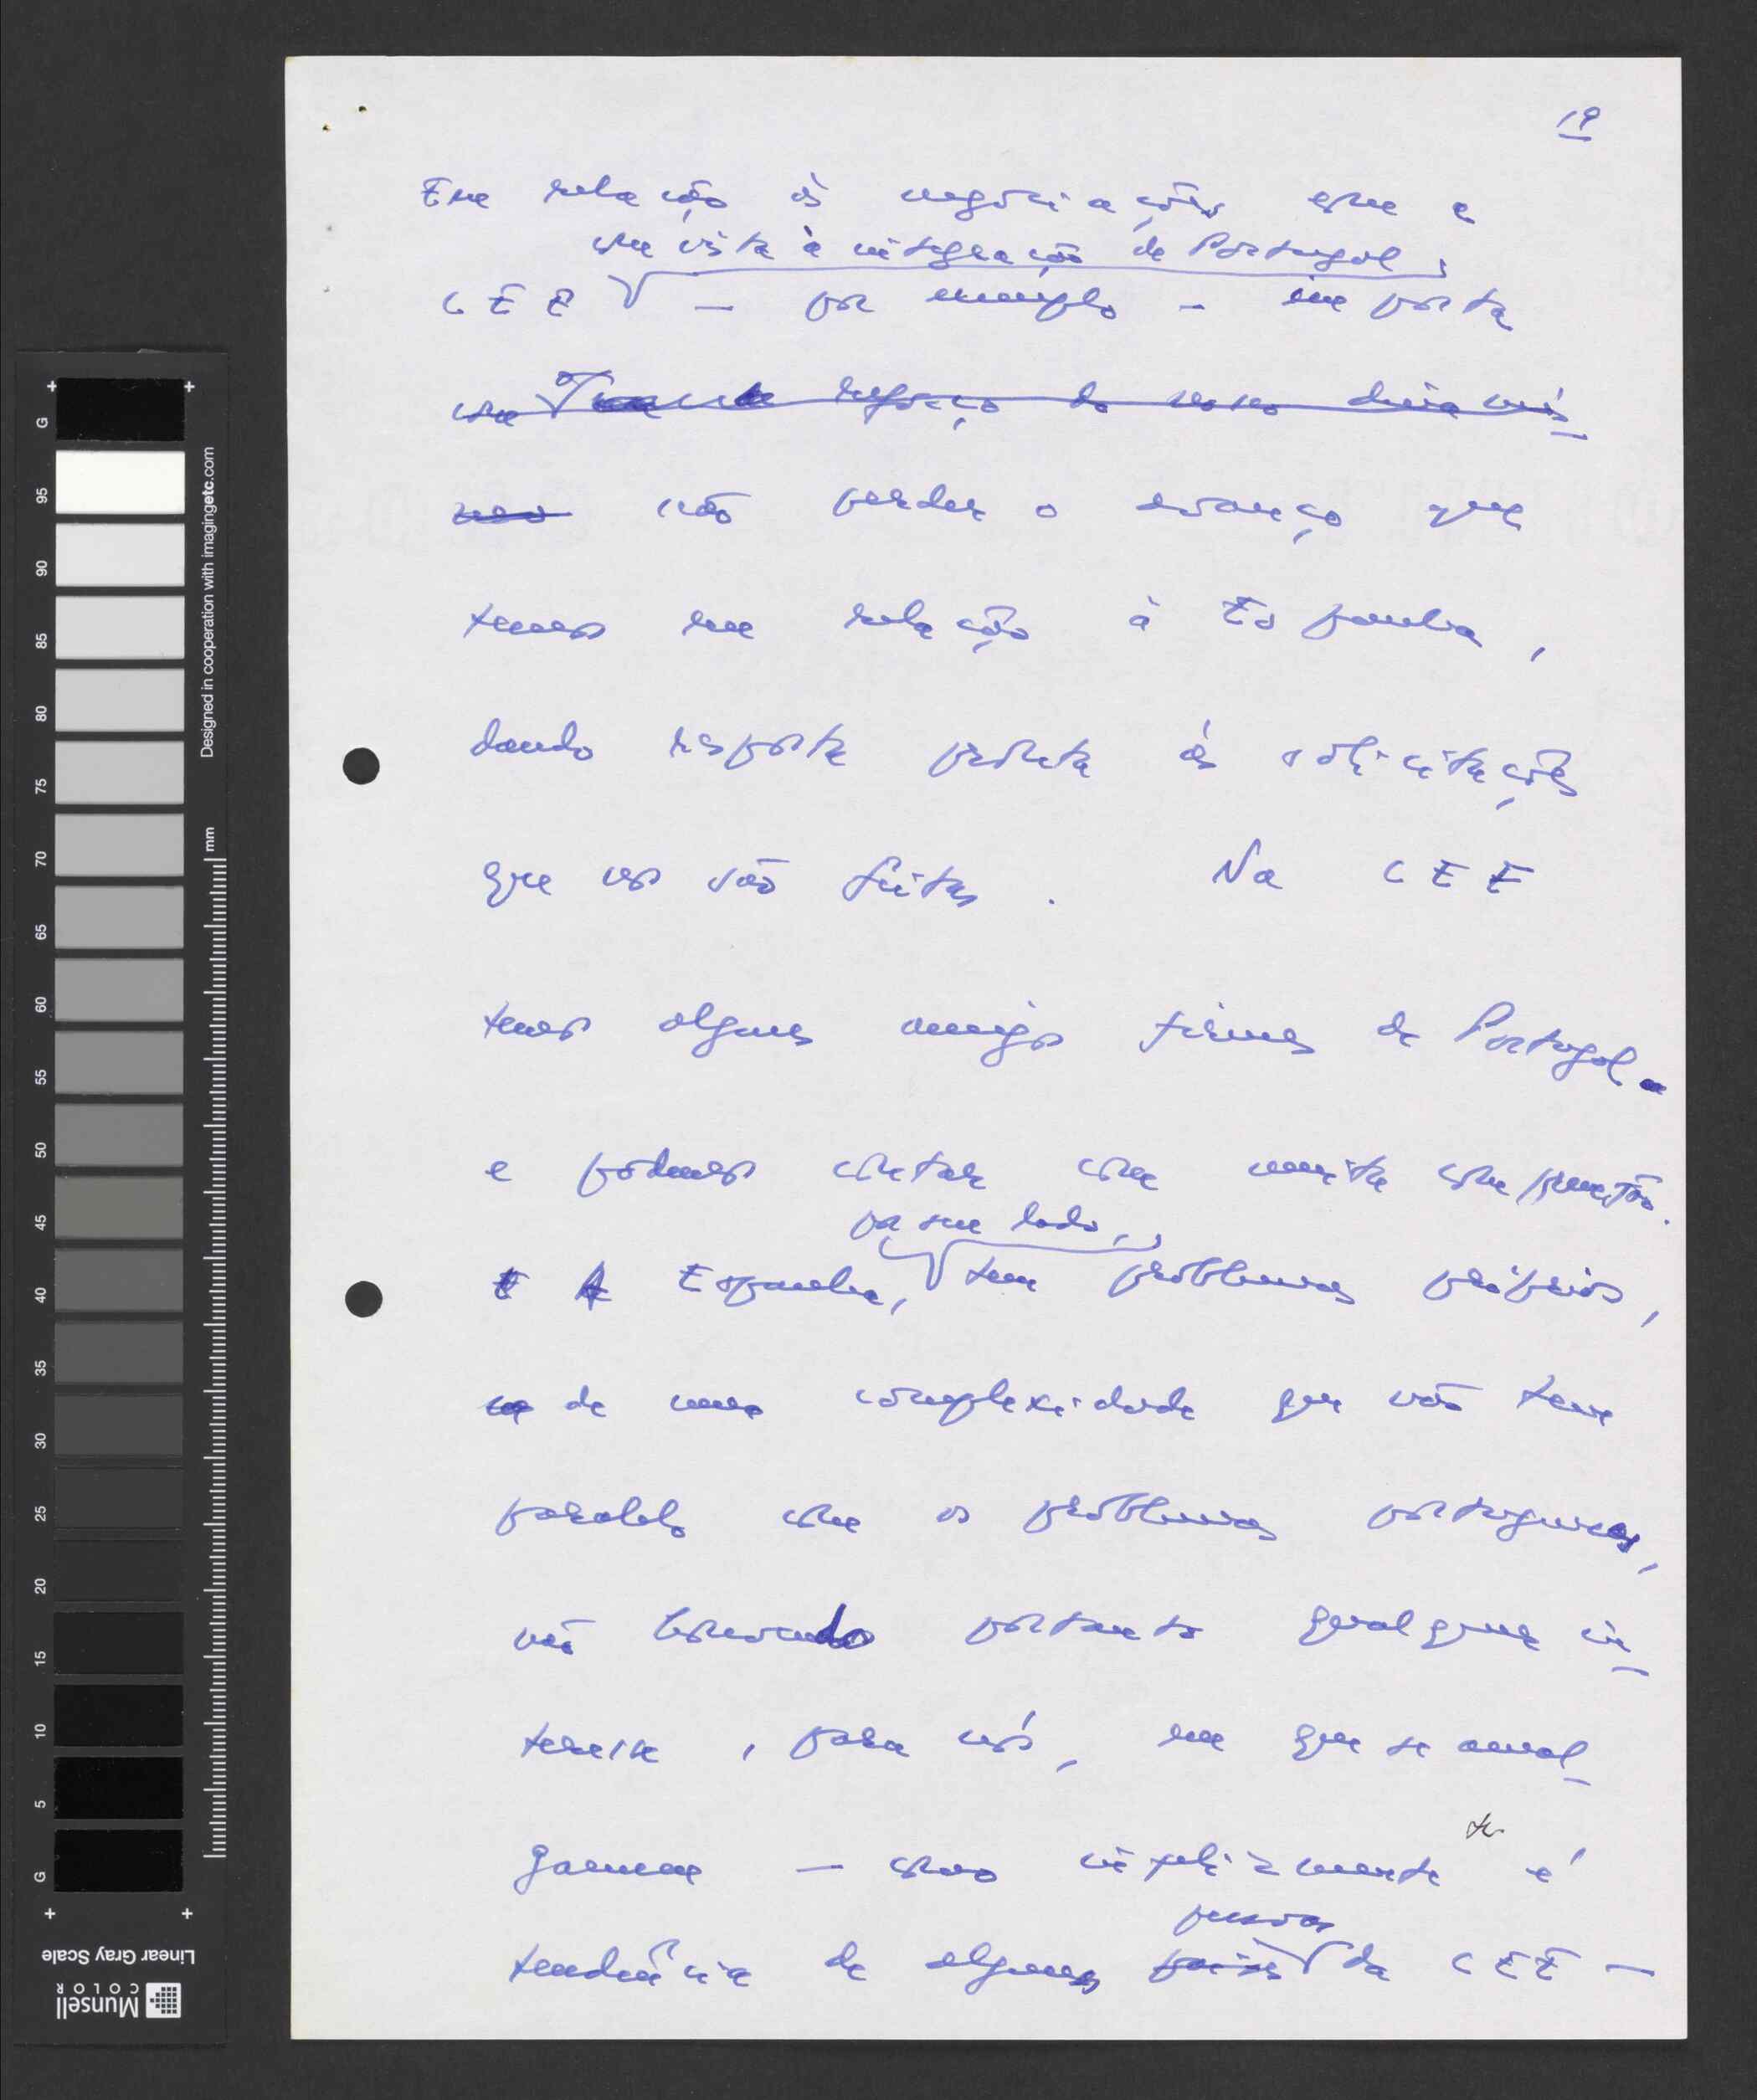 19
Em relação às negociações com a
com vista à integração de Portugal,
CEE — por exemplo - importa
reforço do nosso dina
não perder o avanço que
temos em relação à Espanha,
dando resposta pronta às solicitações
que nos são feitas. Na CEE
temos alguns amigos firmes de Portugal
e podemos contar com muita compreensão.
por seu lado,
A Espanha, tem problemas próprios,
de uma complexidade que não tem
paralelo com os problemas portugueses,
não havendo portanto qualquer in_
teresse, para nós, em que se amal_
gamem — como infelizmente é
pessoas
tendência de algumas países da CEE —
G
95
90
85
80
75
70
65
60
55
50
45
40
35
30
25
20
15
10
5
G
Designed in cooperation with imagingetc.com
mm
Linear Gray Scale
Munsell
COLOR